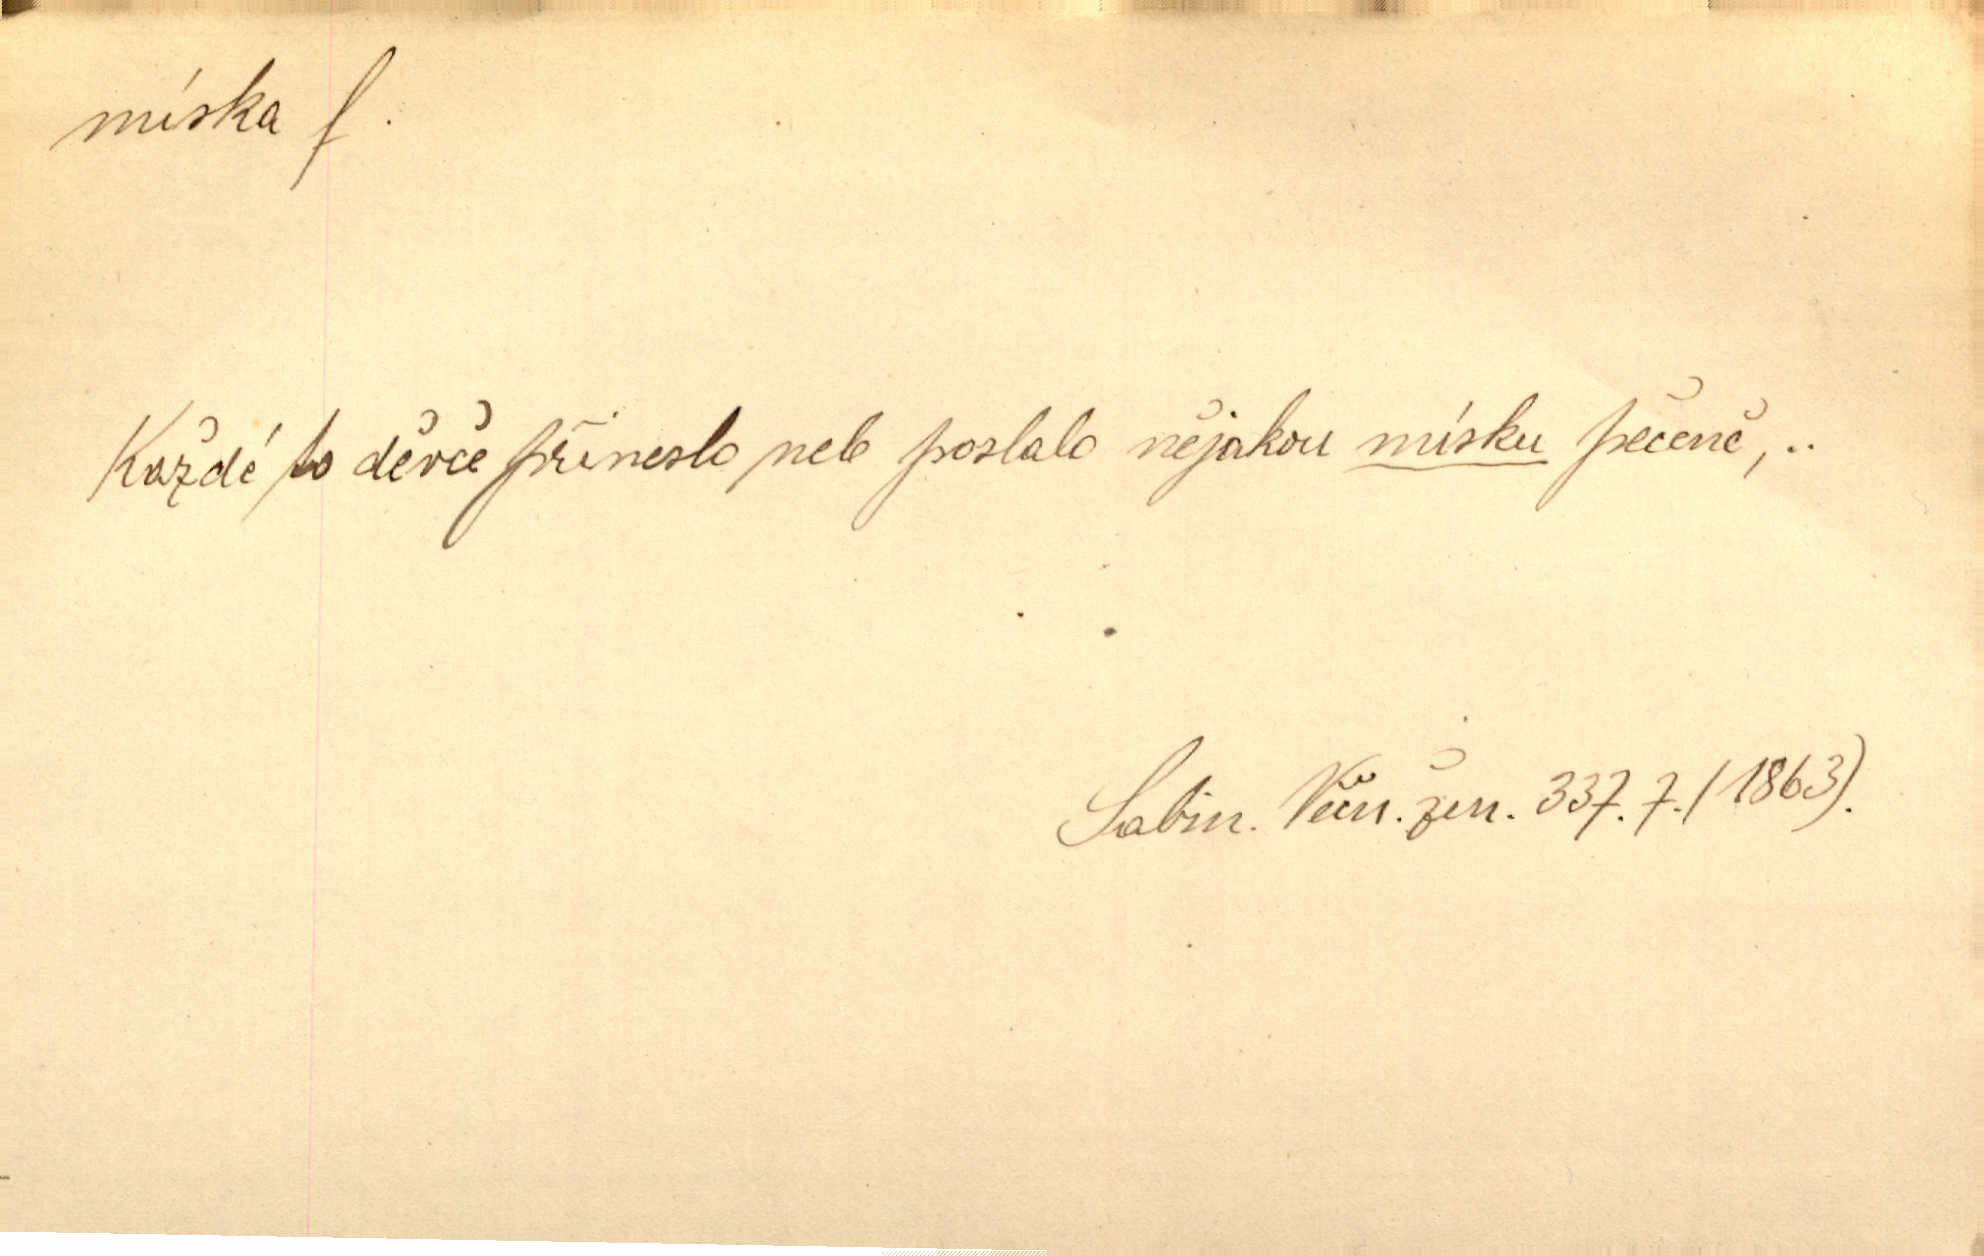 míska f.
Každé to děvče přineslo neb poslalo nějakou mísku pečeně, ..
Sabin. Věčn. žen. 337. 7. (1863).